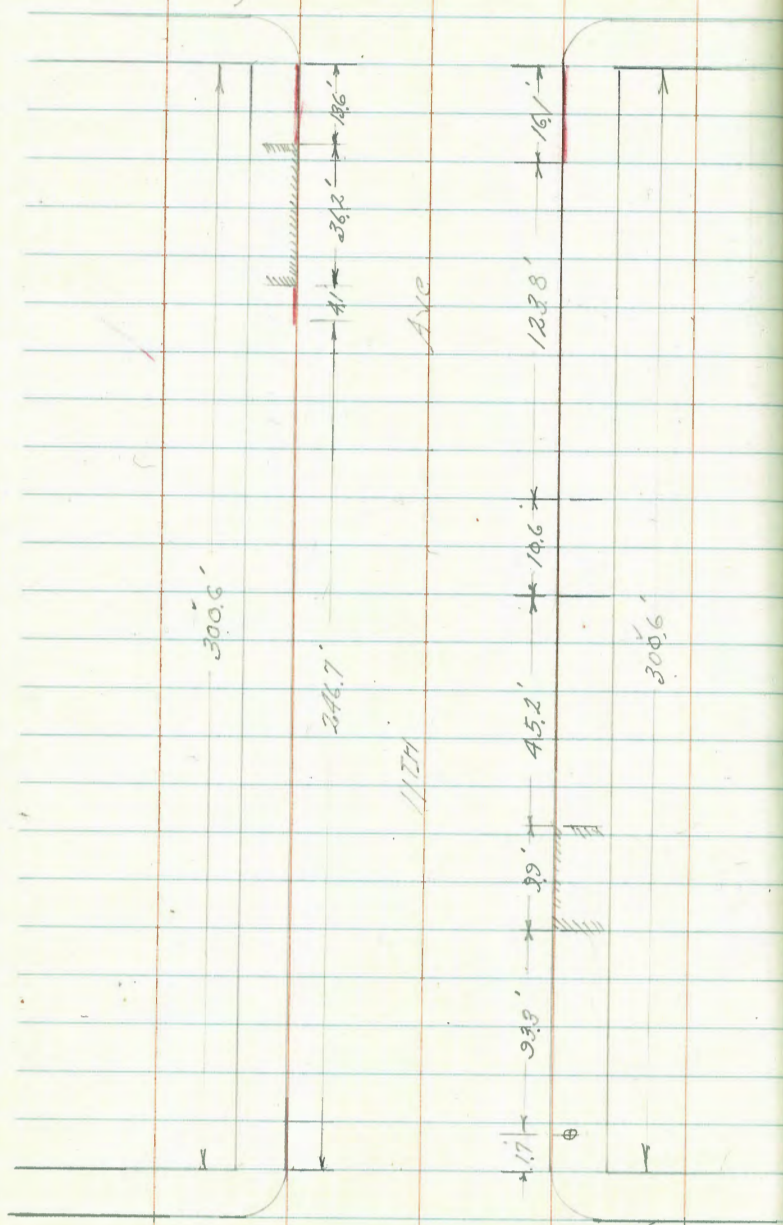 300.6'
13.6'
36.2'
4.1
246.7'
11TH Ave
16.1'
123.8'
10.6
45.2'
9.9'
93.3'
1.7
300.6'